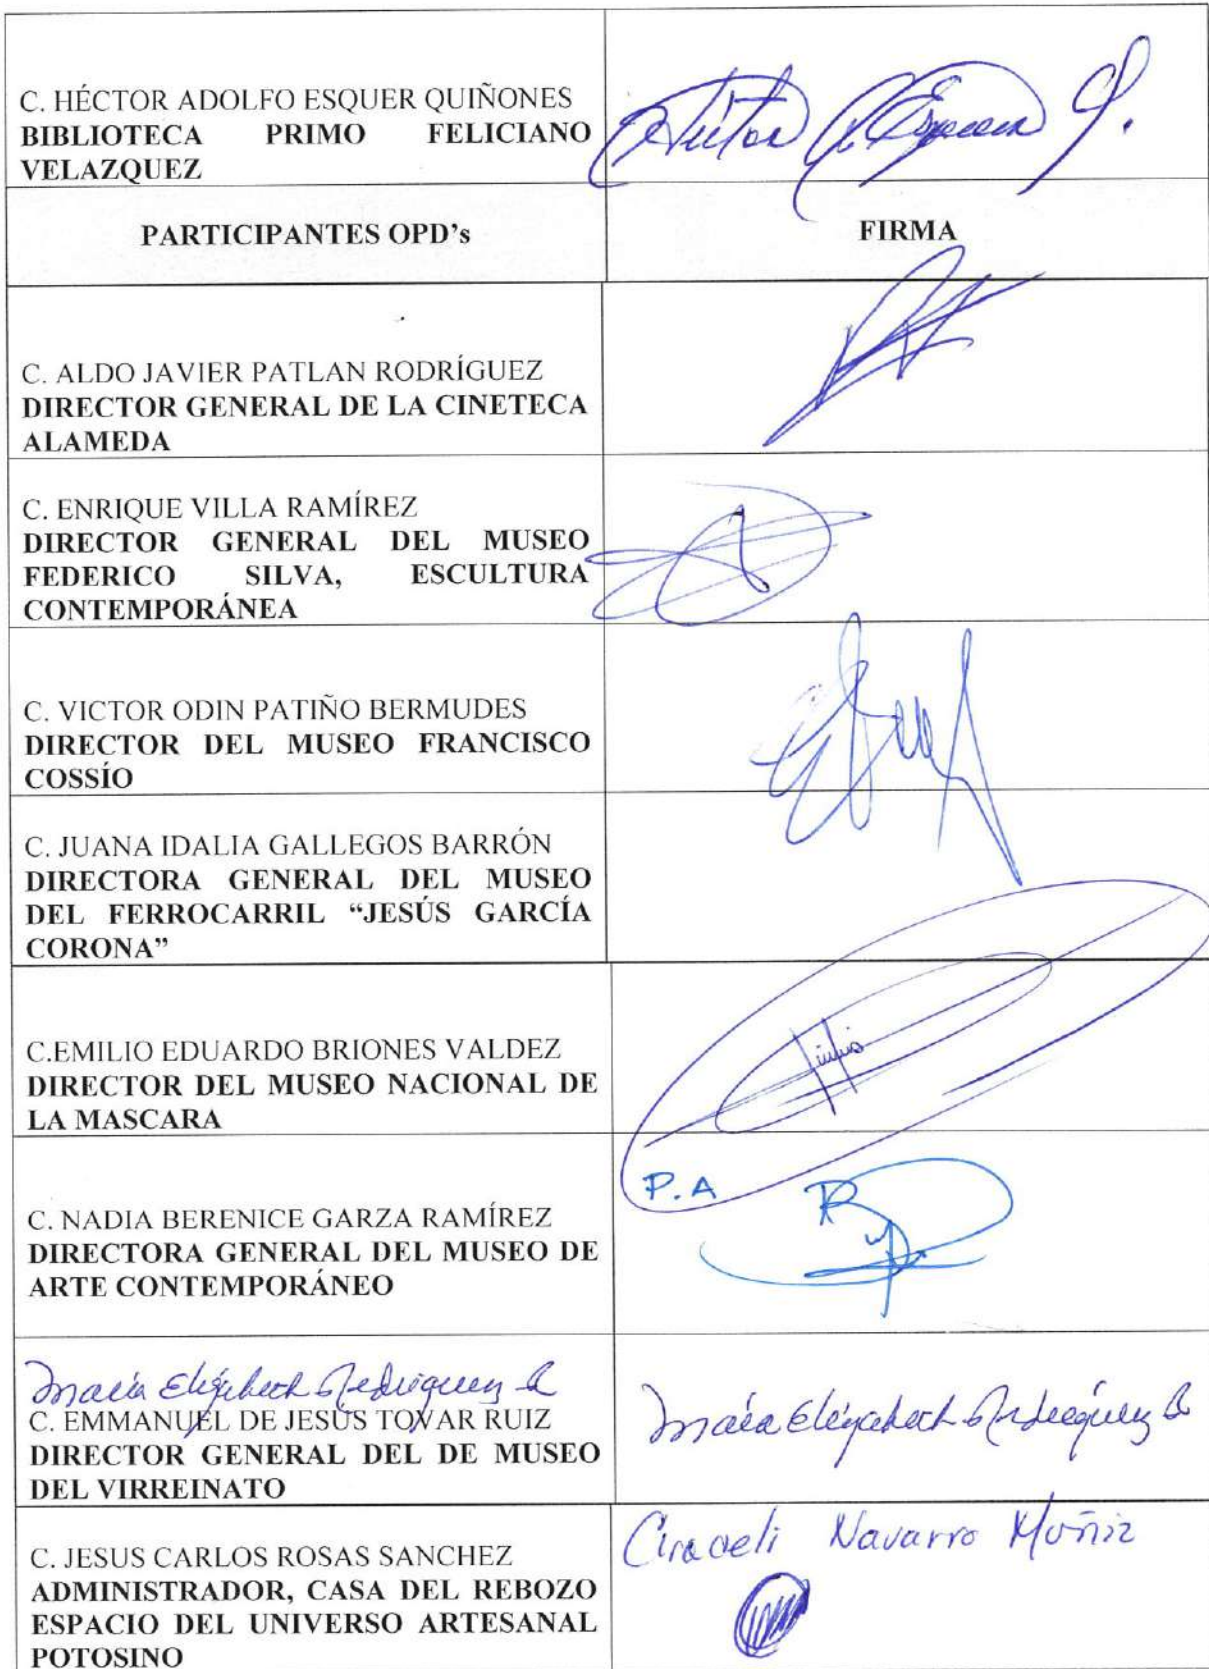 C. HÉCTOR ADOLFO ESQUER QUIÑONES
BIBLIOTECA PRIMO FELICIANO
VELAZQUEZ
Héctor A Esquer Q.
PARTICIPANTES OPD's
FIRMA
C. ALDO JAVIER PATLAN RODRÍGUEZ
DIRECTOR GENERAL DE LA CINETECA
ALAMEDA
C. ENRIQUE VILLA RAMÍREZ
DIRECTOR GENERAL DEL MUSEO
FEDERICO SILVA, ESCULTURA
CONTEMPORÁNEA
C. VICTOR ODIN PATIÑO BERMUDES
DIRECTOR DEL MUSEO FRANCISCO
COSSÍO
C. JUANA IDALIA GALLEGOS BARRÓN
DIRECTORA GENERAL DEL MUSEO
DEL FERROCARRIL “JESÚS GARCÍA
CORONA”
C.EMILIO EDUARDO BRIONES VALDEZ
DIRECTOR DEL MUSEO NACIONAL DE
LA MASCARA
C. NADIA BERENICE GARZA RAMÍREZ
DIRECTORA GENERAL DEL MUSEO DE
ARTE CONTEMPORÁNEO
P.A
María Elizabeth Rodríguez
C. EMMANUEL DE JESÚS TOVAR RUIZ
DIRECTOR GENERAL DEL DE MUSEO
DEL VIRREINATO
María Elizabeth Rodríguez
C. JESUS CARLOS ROSAS SANCHEZ
ADMINISTRADOR, CASA DEL REBOZO
ESPACIO DEL UNIVERSO ARTESANAL
POTOSINO
Navarro Muñiz